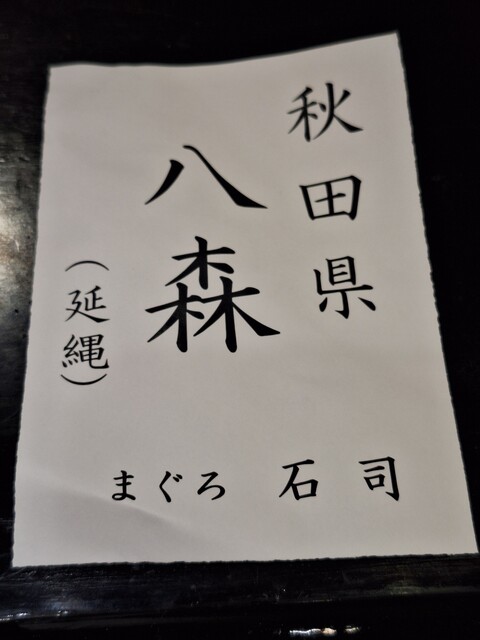 秋田県
八森
(延縄)
まぐろ 石司